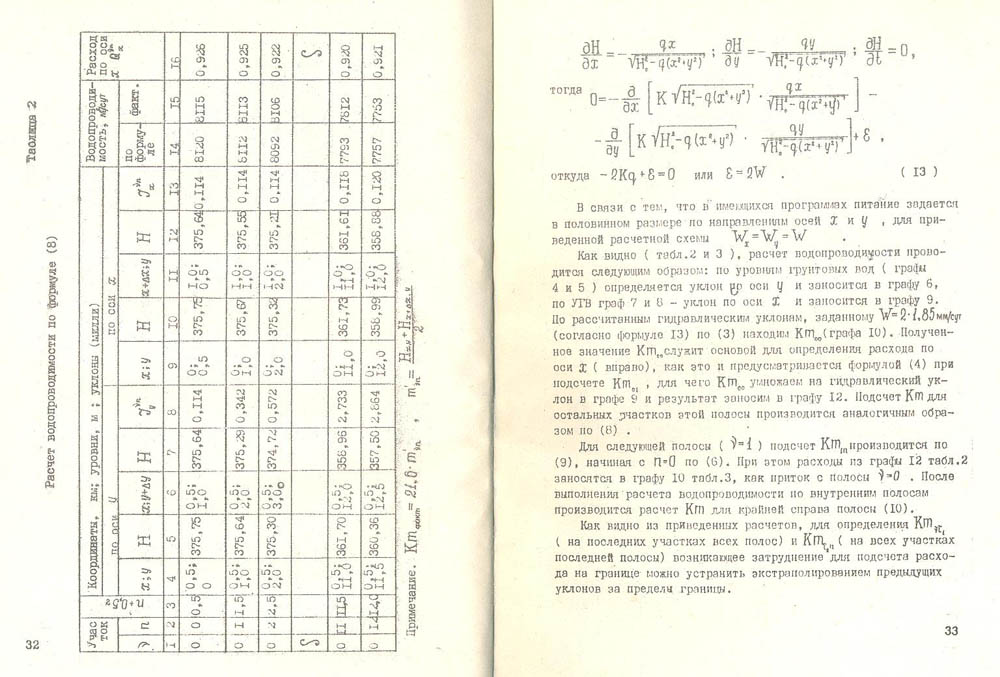 32
Таблица 2
Расчет водопроводимости по формуле (8)
Учас ток | n+0,5 | Координаты, км; уровни, м ; уклоны (мклли) | Водопроводимость, м²/сут | Расход по оси x Q
по оси y | по оси x | по формуле | факт.
ν | n | x;y | H | x;y+Δy | H | J | x;y | H | x+Δx;y | H | J
I | 2 | 3 | 4 | 5 | 6 | 7 | 8 | 9 | I0 | II | I2 | I3 | I4 | I5 | I6
0 | 0 | 0,5 | 0,5; 0 | 375,75 | 0,5; I,0 | 375,64 | 0,II4 | 0; 0,5 | 375,75 | I,0; 0,5 | 375,64 | 0,II4 | 8I20 | 8II5 | 0,926
0 | I | I,5 | 0,5; I,0 | 375,64 | 0,5; 2,0 | 375,29 | 0,342 | 0; I,0 | 375,67 | I,0; I,0 | 375,55 | 0,II4 | 8II2 | 8II3 | 0,925
0 | 2 | 2,5 | 0,5; 2,0 | 375,30 | 0,5; 3,0 | 374,72 | 0,572 | 0; 2,0 | 375,32 | I,0; 2,0 | 375,2I | 0,II4 | 8092 | 8I06 | 0,922
0 | II | II,5 | 0,5; II,0 | 36I,70 | 0,5; I2,0 | 358,96 | 2,733 | 0; II,0 | 36I,73 | I,0; II,0 | 36I,6I | 0,II8 | 7793 | 78I2 | 0,920
0 | I2 | I2,0 | 0,5; II,5 | 360,36 | 0,5; I2,5 | 357,50 | 2,864 | 0; I2,0 | 358,99 | I,0; I2,0 | 358,88 | 0,I20 | 7757 | 7753 | 0,92I
Примечание. Km факт = 21,6·m'νn ,
∂H/∂x = − qx/√H²₀−q(x²+y²) ; ∂H/∂y = − qy/√H²₀−q(x²+y²) ; ∂H/∂t = 0,
тогда 0 = − ∂/∂x [K √H²₀−q(x²+y²) · qx/√H²₀−q(x²+y²)] −
− ∂/∂y [K √H²₀−q(x²+y²) · qy/√H²₀−q(x²+y²)] + ε ,
откуда −2Kq+ε=0 или ε=2W . ( I3 )
В связи с тем, что в имеющихся программах питание задается
в половинном размере по направлениям осей x и y , для при-
веденной расчетной схемы Wx=Wy=W .
Как видно ( табл.2 и 3 ), расчет водопроводимости прово-
дится следующим образом: по уровням грунтовых вод ( графы
4 и 5 ) определяется уклон по оси y и заносится в графу 6,
по УГВ граф 7 и 8 – уклон по оси x и заносится в графу 9.
По рассчитанным гидравлическим уклонам, заданному W=2·1,85мм/сут
(согласно формуле I3) по (3) находим Km₀₀(графа I0). Получен-
ное значение Km₀₀служит основой для определения расхода по
оси x ( вправо), как это и предусматривается формулой (4) при
подсчете Km₀₁ , для чего Km₀₀ умножаем на гидравлический ук-
лон в графе 9 и результат заносим в графу I2. Подсчет Km для
остальных участков этой полосы производится аналогичным обра-
зом по (8) .
Для следующей полосы ( ν=1 ) подсчет Km₁ₙпроизводится по
(9), начиная с n=0 по (6). При этом расходы из графы I2 табл.2
заносятся в графу I0 табл.3, как приток с полосы ν=0 . После
выполнения расчета водопроводимости по внутренним полосам
производится расчет Km для крайней справа полосы (I0).
Как видно из приведенных расчетов, для определения Km
( на последних участках всех полос) и Km ( на всех участках
последней полосы) возникающее затруднение для подсчета расхо-
да на границе можно устранить экстраполированием предыдущих
уклонов за пределы границы.
33